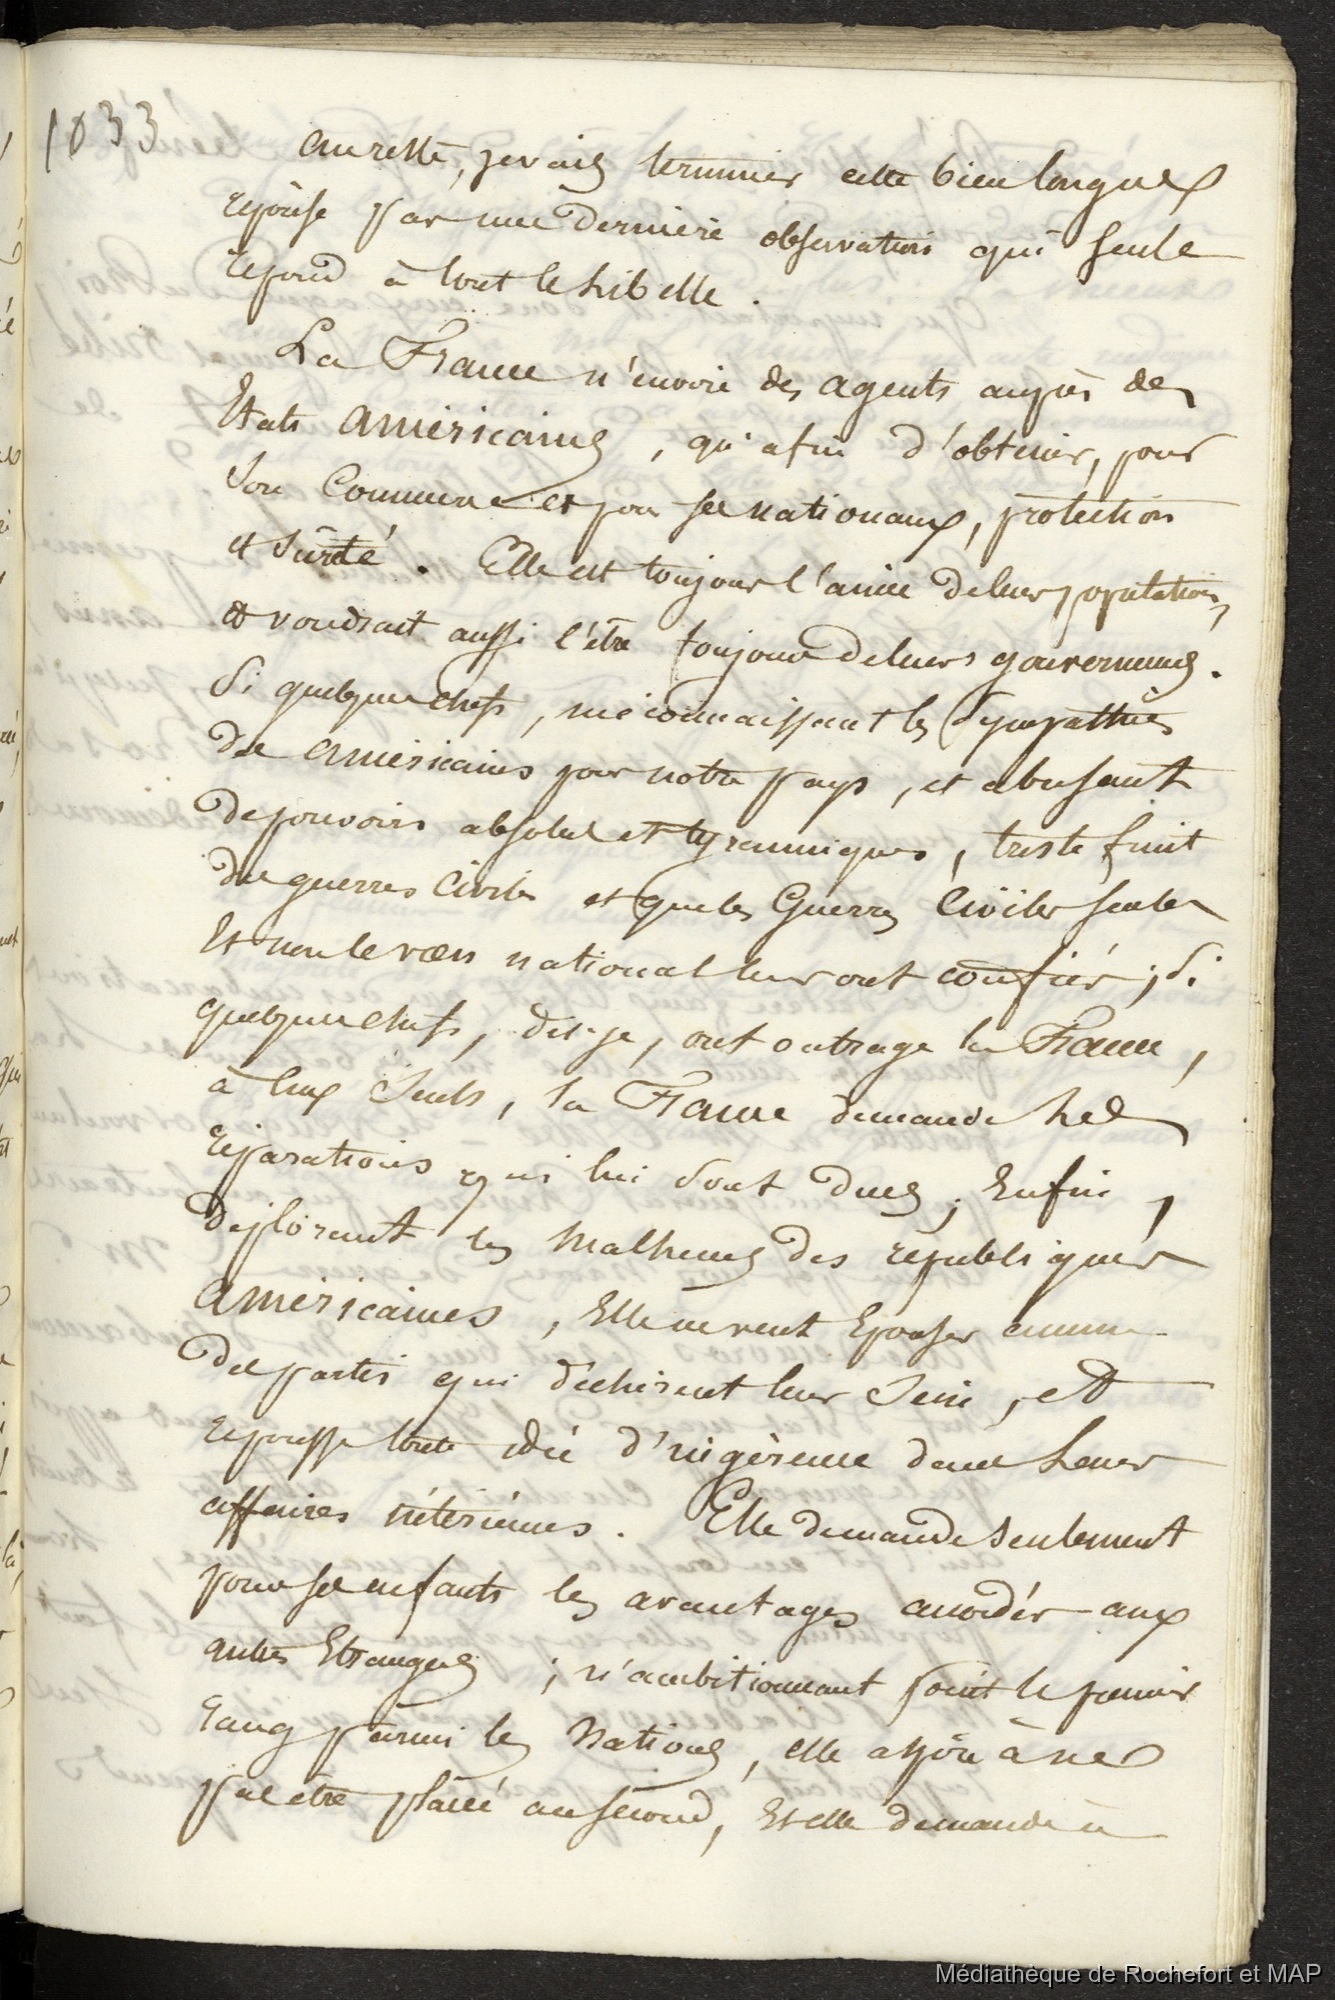 1033
Au reste, je vais terminer cette bien longue
réponse par une dernière observation qui seule
répond à tout le libelle.
La France n'envoie des agents auprès des
Etats américains, qu'afin d'obtenir, pour
Son Commerce et pour ses nationaux, protection
et Sûreté. Elle est toujours l'amie de leur population,
et voudrait aussi l'être toujours de leurs gouvernemens.
Si quelques chefs, méconnaissant les Sympathies
des américains pour notre pays, et abusant
de pouvoirs absolus et tyranniques, triste fruit
des guerres Civiles et que les Guerres Civiles seules
Et non le vœu national leur ont confiés; Si
quelques chefs, dis-je, ont outragé la France,
à Eux Seuls, la France demande les
réparations qui lui Sont dues; Enfin,
déplorant les Malheurs des républiques
américaines, Elle ne veut Epouser aucun
des partis qui déchirent leur Sein, et
repousse toute idée d'ingérence dans Leurs
affaires intérieures. Elle demande seulement
pour ses enfants les avantages accordés aux
autres Etrangers; n'ambitionnant point le premier
rang parmi les Nations, elle aspire à ne
pas être placée au second, Et elle demande à
Médiathèque de Rochefort et MAP